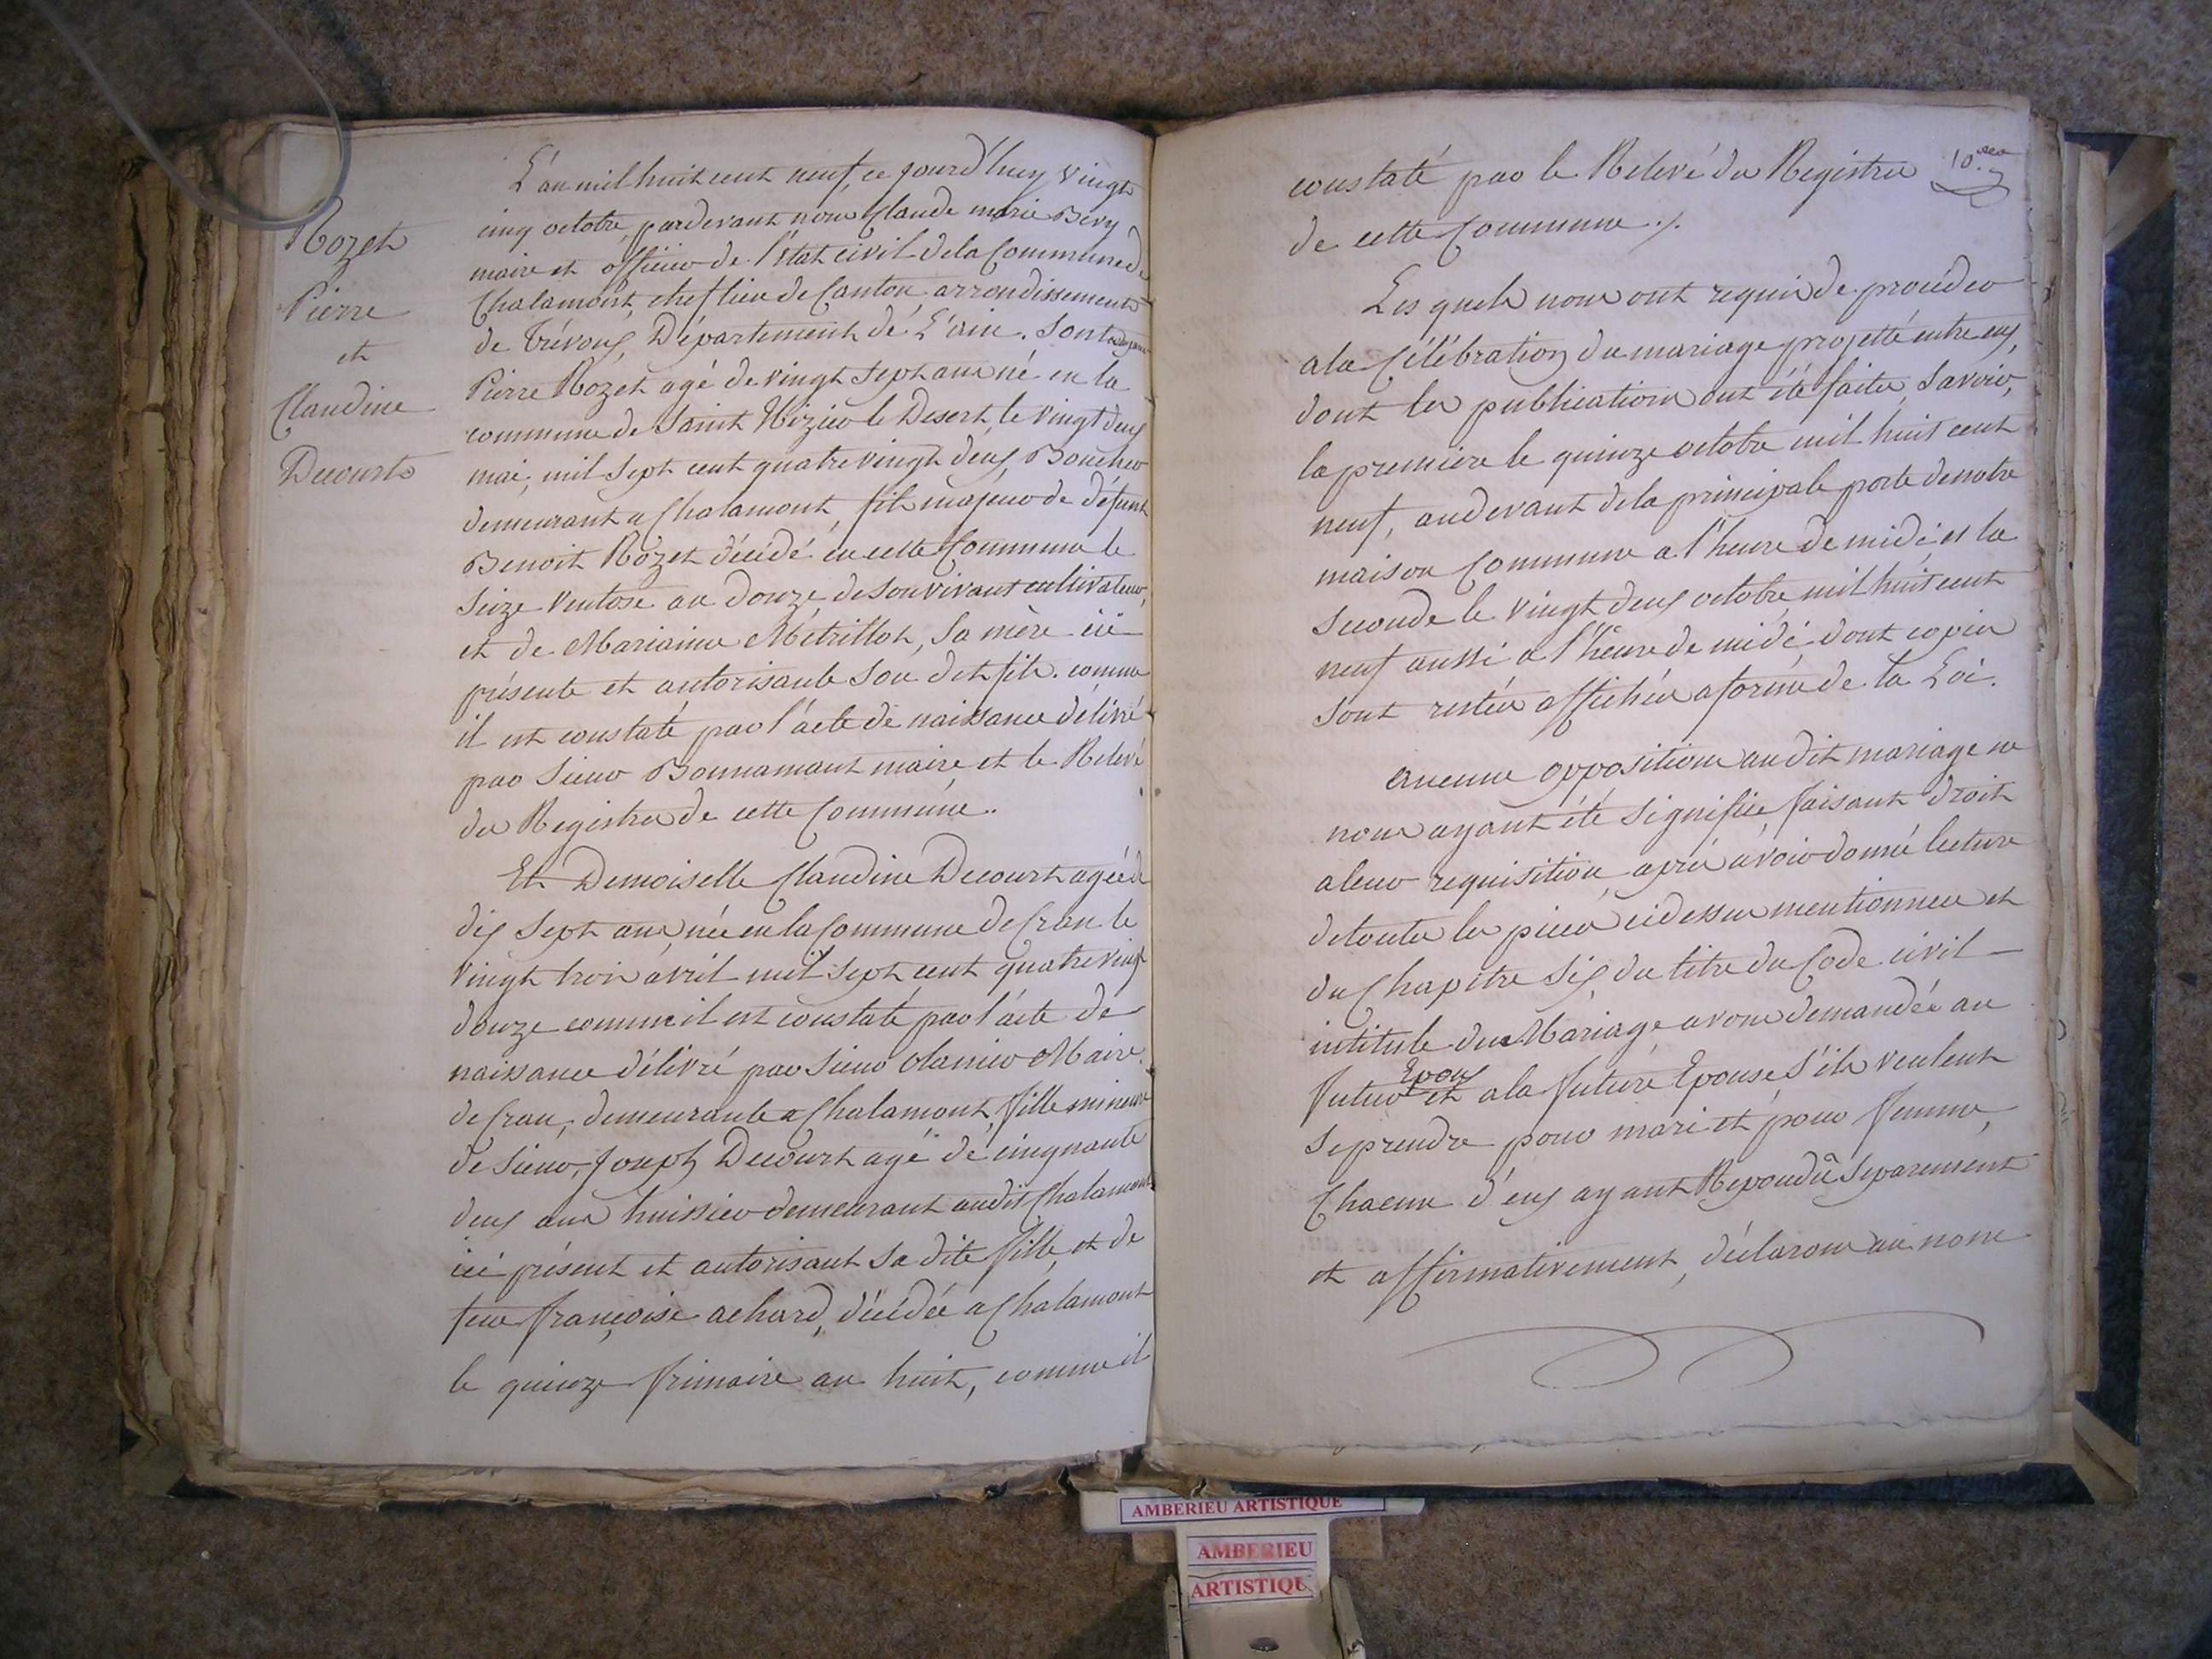 Rozet
Pierre
et
Claudine
Decourt
L'an mil huit cent neuf, ce jourd'huy vingt
cinq octobre, pardevant nous Claude marie Bevy
maire et officier de l'état civil de la Commune de
Chalamont, chef lieu de Canton arrondissement
de Trévoux Département de L'ain. Sont
Pierre Rozet agé de vingt sept ans né en la
commune de Saint Nizier le Desert, le vingt deux
mai, mil sept cent quatre vingt deux, Boucher
demeurant a Chalamont, fils majeur de défunt
Benoit Rozet décédé en cette Commune le
Seize Ventose an douze de Son vivant cultivateur,
et de Marianne Métrillot, Sa mère ici
présente et autorisante Son dit fils. comme
il est constaté par l'acte de naissance délivré
par Sieur Bonnamant maire, et le Relevé
des Registres de cette Commune.
Et Demoiselle Claudine Decourt agée de
dix Sept ans, née en la Commune de Cran le
vingt trois avril mil sept cent quatre vingt
douze comme il est constaté par l'acte de
naissance délivré par Sieur Olanier Maire
de Cran, demeurante a Chalamont, fille mineure
de Sieur, Joseph Decourt agé de cinquante
deux ans huissier demeurant audit Chalamont
ici présent et autorisant Sa dite fille, et de
feue françoise achard, décédée a Chalamont
le quinze frimaire an huit, comme il
10.me
constaté par le Relevé des Registres
de cette Commune ./.
Les quels nous ont requis de procéder
a la Célébration du mariage projetté entre eux,
dont les publications ont été faites, Savoir,
la premiere le quinze octobre mil huit cent
neuf, au devant de la principale porte de notre
maison Commune a l'heure de midi, et la
Seconde le vingt deux octobre mil huit cent
neuf aussi a l'heure de midi, dont copies
Sont restées affichées a forme de la Loi.
Aucune opposition au dit mariage ne
nous ayant été Signifiée, faisant droit
a leur requisition, après avoir donné lecture
de toutes les pieces cidessus mentionnées et
du Chapitre Six du titre du Code civil
intitulé du Mariage, avons demandée au
Epoux
futur et a la future Epouse S'ils veulent
Se prendre pour mari et pour femme,
Chacun d'eux ayant Repondû Séparement
et affirmativement, déclarons au nom
AMBERIEU ARTISTIQUE
AMBERIEU
ARTISTIQU